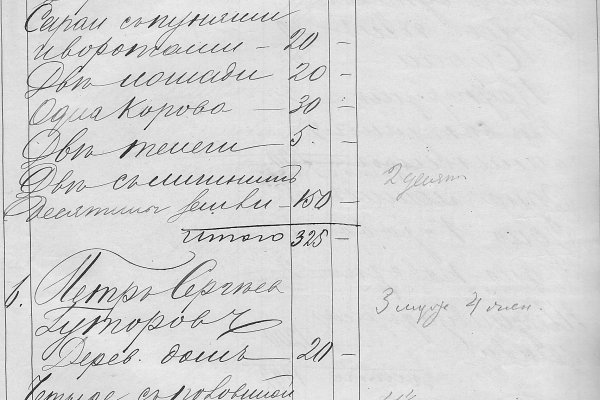 Сараи съ пунями
и воротами — 20 —
Двѣ лошади 20 —
Одна корова — 30 —
Двѣ телеги 5. —
Двѣ съ
десятины земли — 150 — 2 десят
Итого 325 —
6. Петръ Сергѣев
Гуторовъ 3 муж 4 жен.
Дерев. домъ — 20 —